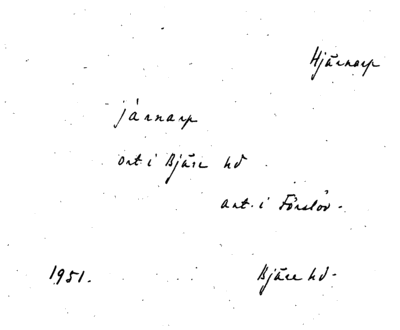 Hjärnarp
järnarp
ort i Bjäre hd
ant. i Förslöv -
1951.
Bjäre hd -